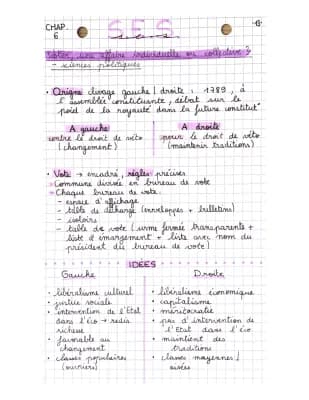 CHAP.
6
SES
-6-
Voter, une affaire individuelle ou collective ?
- sciences politiques
• Origine clivage gauche / droite : 1789, à
l'assemblée constituante, débat sur le
poid de la royauté dans la future constitut°
A gauche
contre le droit de véto
(changement)
A droite
pour le droit de véto
(maintenir traditions)
• Vote → encadré, règles précises
- Commune divisée en bureau de vote
- Chaque bureau de vote :
- espace d'affichage
- table de décharge (enveloppes + bulletins)
- isoloirs
- table de vote (urne fermée transparente +
liste d'émargement + liste avec nom du
président du bureau de vote)
IDÉES
Gauche
• libéralisme culturel
• justice sociale
• intervention de l'Etat
dans l'éco → redis
richesse
• favorable au
changement
• classes populaires
(ouvriers)
Droite
• libéralisme économique
• capitalisme
• méritocratie
• pas d'intervention de
l'Etat dans l'éco
• maintient des
traditions
• classes moyennes /
aisées